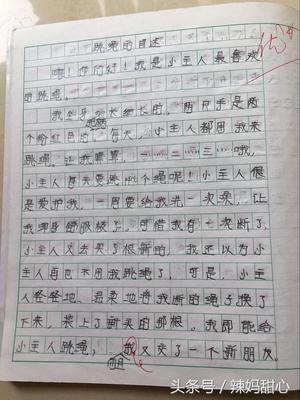 跳绳的自述
嗨!你们好!我是小主人最喜欢
的跳绳。
我全身分长细长的,两只手是两
个粉红色的。每天,小主人都用我来
跳绳。让我算算,一二三……哦,
小主人每天要跳个绳呢!小主人很
是爱护我,一周要给我一次澡,让
我舒服极了。可惜我有一次断了,
小主人又去买了根新的。我还以为小
主人再也不用我跳绳了,可是,小主
人轻轻地、温柔地将我断的绳子换了
下来,装上了新买的那根。我即能给
小主人跳绳,我又交了一个新朋友
优
头条号/辣妈甜心